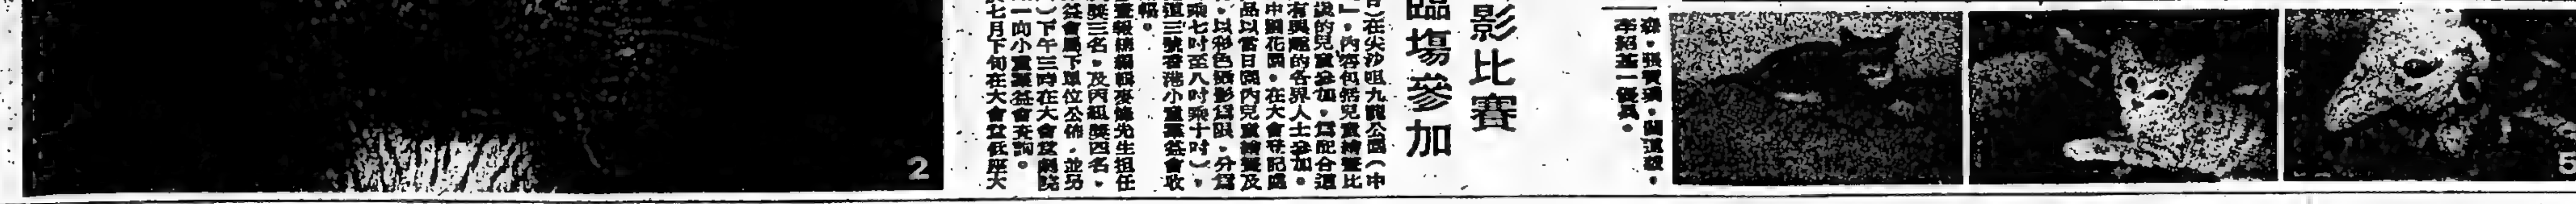 森，張寶珠，關道毅，
李紹基一優異。
影比賽
臨場參加
日）在尖沙咀九龍公園（中
』，內容包括兒童繪畫比
歲的兒童參加，爲配合這
有興趣的各界人士參加。
中國花園，在大會登記處
品以當日園內兒童繪畫及
，以彩色攝影爲限，分爲
乘七吋至八吋乘十吋），
道三號香港小童羣益會收
輯。
畫報總編輯麥烽先生担任
獎三名，及丙組獎四名，
益會屬下單位公佈，並另
）下午三時在大會堂劇院
一向小童羣益會查詢。
於七月下旬在大會堂低座大
2